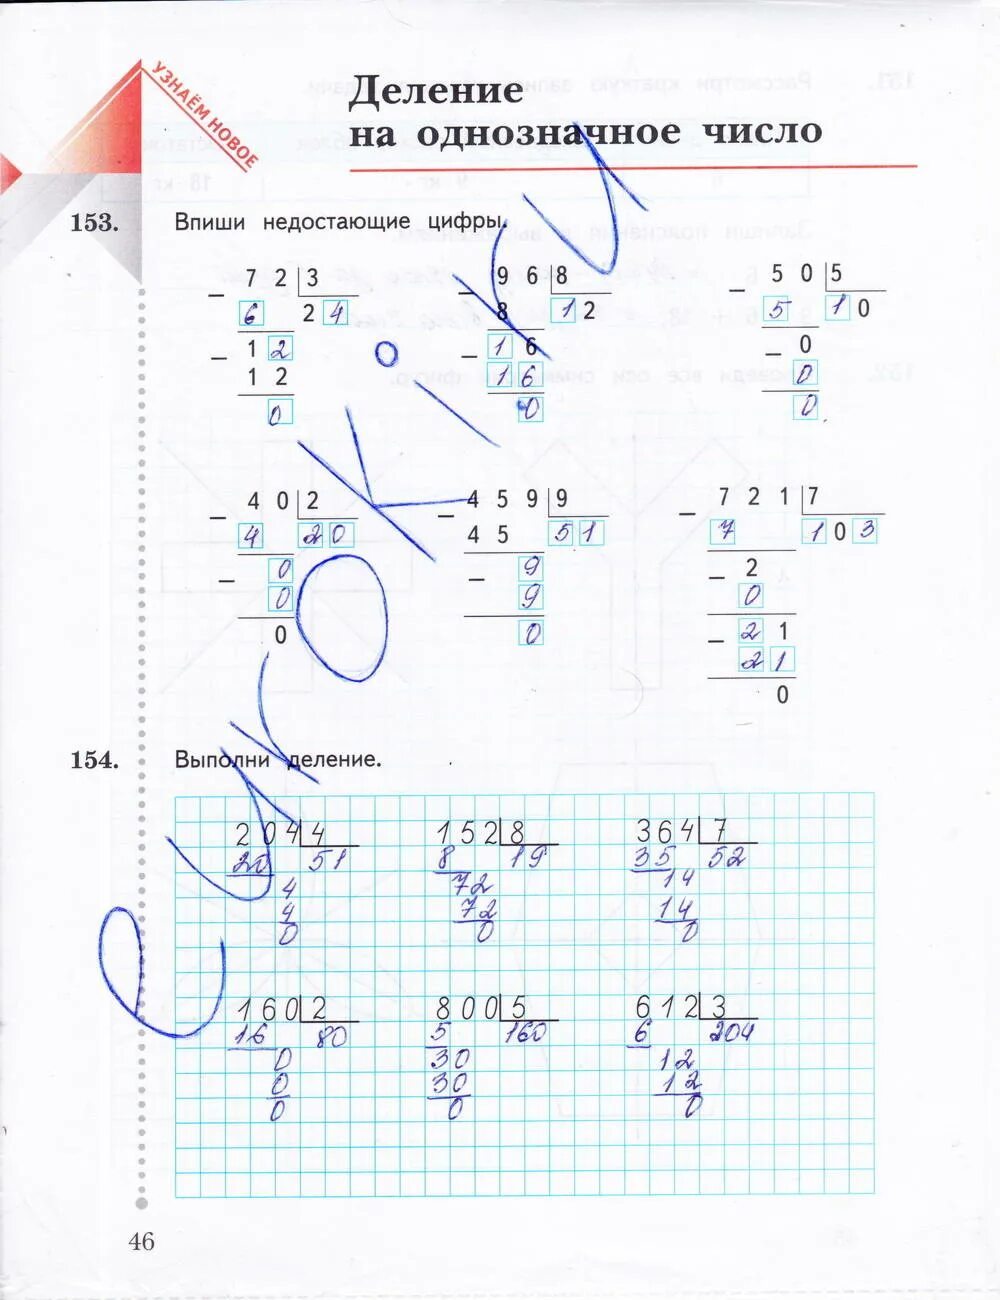 УЗНАЁМ НОВОЕ
Деление
на однозначное число
153. Впиши недостающие цифры.
− 7 2 | 3
6 | 2 4
− 1 2
1 2
0
− 9 6 | 8
8 | 1 2
− 1 6
1 6
0
− 5 0 | 5
5 | 1 0
− 0
0
0
− 4 0 | 2
4 | 2 0
− 0
0
0
− 4 5 9 | 9
4 5 | 5 1
− 9
9
0
− 7 2 1 | 7
7 | 1 0 3
− 2
0
− 2 1
2 1
0
154. Выполни деление.
2 0 4 | 4
20 | 51
4
4
0
1 5 2 | 8
8 | 19
72
72
0
3 6 4 | 7
35 | 52
14
14
0
1 6 0 | 2
16 | 80
0
0
0
8 0 0 | 5
5 | 160
30
30
0
6 1 2 | 3
6 | 204
12
12
0
46